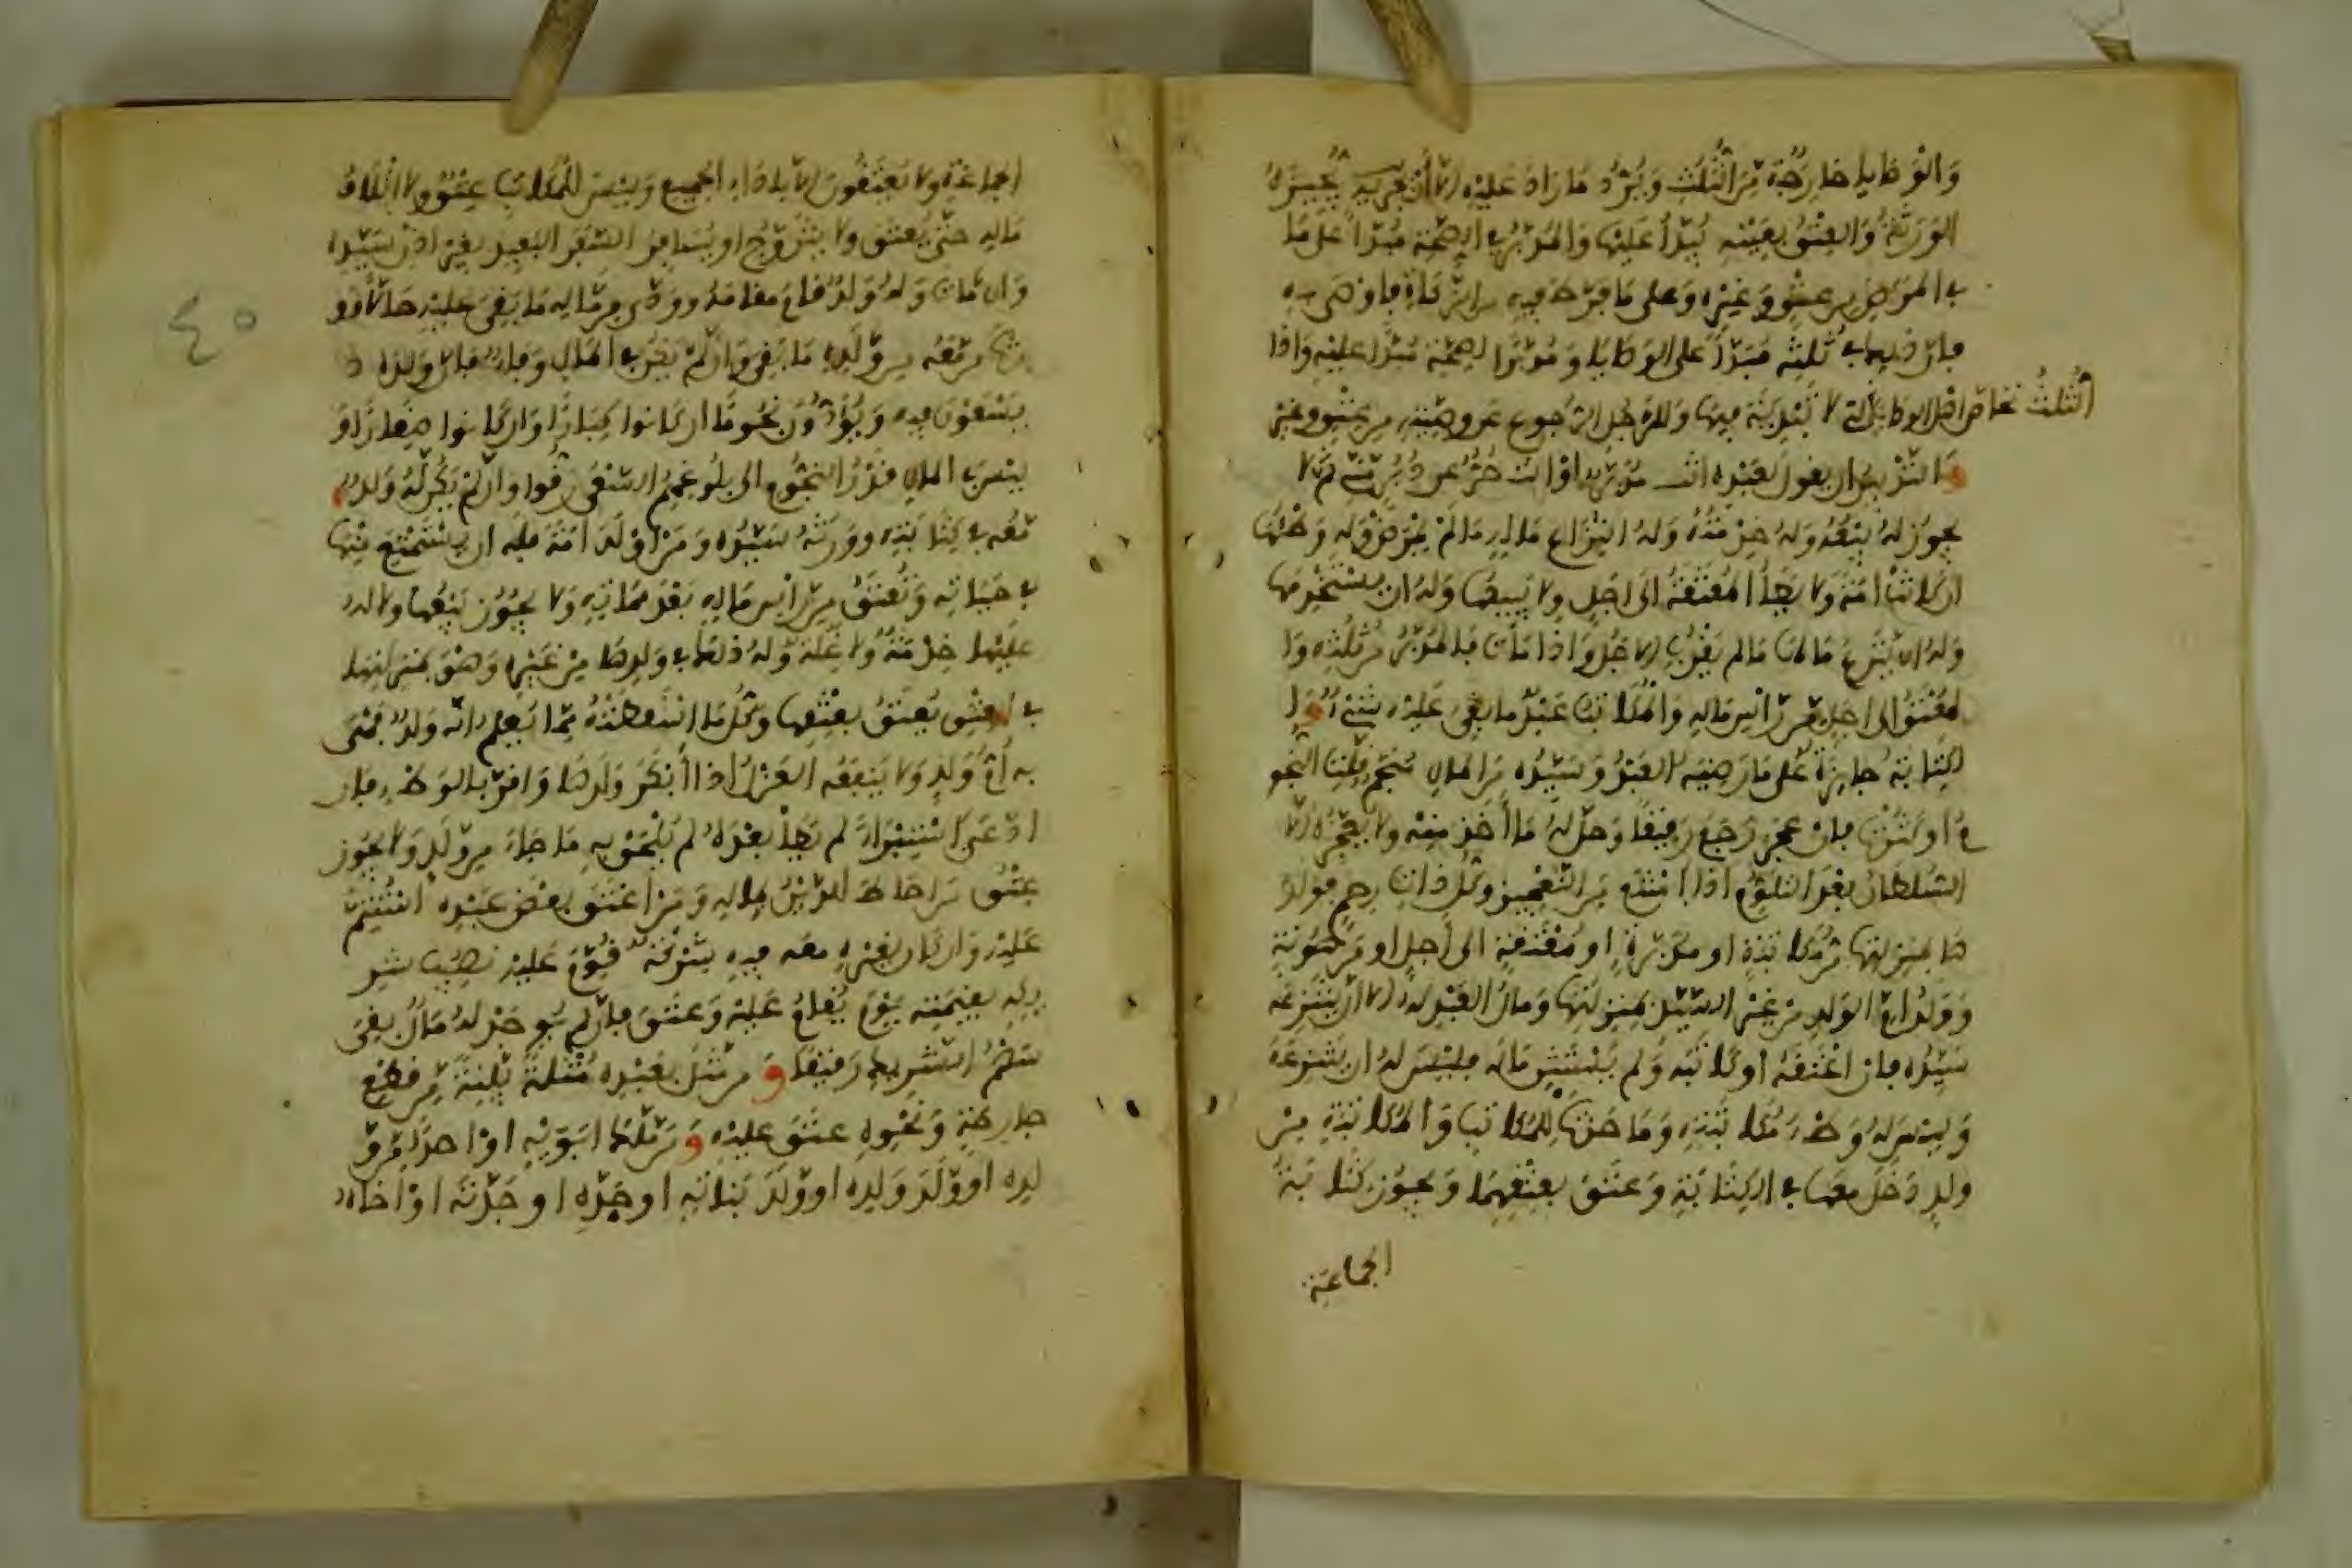 وَالوَصَايا خارجَة مِّنَ الثُّلُثِ وَيُرَدُّ مَا زادَ عَليْهِ إلا أن يُجِيزَهُ
الوَرَثَةُ وَالعِتْقُ بعَيْنِه يُبَدَّأُ عَليْهَا وَالمُدَبَّرُ في الصِّحَّةِ مُبَدَّأٌ عَلى مَا
في المَرَضِ مِن عِتْقٍ وَغَيْرِهِ وَعَلى مَا فَرَّطَ فيهِ من الزَّكاةِ فأوْصَى به
فإن ذلك في ثُلثِه مُبَدَّأً على الوصَايا وَمُدَبَّرُ الصِّحَّة مُبَدَّأ عليْهِ وَإذا
ضاق الثُّلثُ تحَاصّ اهل الوصَايا التي لا تَبْدِيَةَ فيها وَللرَّجُلِ الرُّجوع عَن وصِيَّتِه مِن عِتْقٍ وغيْرِه
والتَّدْبيرُ ان يقولَ لعَبْدِه انت مُدَبَّرٌ أوْ انتَ حُرٌّ عن دُبُرٍ مِنِّي ثمّ لا
يجوز لهُ بَيْعُهُ وَلهُ خِدْمَتُهُ وَلهُ انتِزاع مَالِهِ مَا لمْ يَمْرَضْ وَلهِ وَطْئُهَا
ان كانتْ امَةً وَلا يَطأُ المُعْتَقَةَ إلى أجَلٍ ولا يَبِيعُهَا وَلهُ ان يسْتَخْدِمَها
وَلهُ ان يَنْتَزِعَ مَالهَا مَا لم يَقْرُبِ الاجَلُ وَإذا مَاتَ فالمُدَبَّرُ مِن ثُلُثِه وَا
لمُعْتَقُ إلى أجَلٍ مِّن رَأسِ مَالِهِ وَالمُكاتَبُ عَبْدٌ ما بقِيَ عَليْهِ شَيْءٌ وا
لكِتَابَةُ جايِزَةٌ عَلى مَا رَضِيَه العَبْدُ وَسَيِّدُه مِنَ المَالِ مُنَجَّمٍ قَلَّتِ النُّجو
مُ اوْ كَثُرَتْ فإن عَجَزَ رَجَعَ رَقيقاً وَحَلَّ لهُ مَا أخَذ مِنْه ولا يُعَجِّزُهُ إلا
السُّلطانُ بعْدَ التَّلَوُّمِ إذا امْتَنَعَ مِنَ التَّعْجيز وَكُلُّ ذاتِ رحِمٍ فَوَلدُ
هَا بمَنْزِلتِهَا مِن مُّكاتَبَةٍ او مُدَبَّرَةٍ او مُعْتَقَةٍ إلى أجلٍ او مَرْهُونَةٍ
وَوَلدُ امِّ الوَلدِ مِنْ غيْرِ السَّيِّدِ بمَنْزِلتِهَا وَمالُ العَبْدِ لهُ إلا أنْ يَّنْتَزِعَه
سَيِّدُه فإن اعْتَقَهُ اوْ كاتَبَه وَلم يَسْتَثْنِ مَالَه فليْسَ لهُ ان يَنْتَزِعَهُ
وَليْسَ لهُ وَطْءُ مُكاتَبَتِهِ وَمَا حَدَثَ للمُكاتَبِ وَالمُكاتَبَةِ مِنْ
ولدٍ دَخَلَ معَهما في الكِتَابَةِ وَعَتَقَ بعِتْقِهِمَا وَيجوزُ كِتَابَةُ
الجماعَة
الجماعَةِ ولا يَعْتِقُونَ إلا بأداءِ الجميعِ وَليْسَ للمُكاتَبِ عِتْقٌ ولا اتْلافُ
مَالِهِ حتَّى يَعْتِقَ ولا يتزَوّجُ او يُسَافِرُ السَّفَرَ البَعِيدَ بغيْرِ إذنِ سَيِّدِه
وَإن مَاتَ وَلهُ وَلدٌ قامَ مقامَهُ وودّى مِن مَّالِه مَا بَقِيَ عليْهِ حَالاً وَو
رثَ مَن مّعَه مِن وَّلدِهِ مَا بَقِيَ وَإن لمْ يَكُنْ في المَالِ وَفاءٌ فإن وَلدَه
يَسْعَوْنَ فيهِ وَيُؤَدُّونَ نُجُومًا ان كانوا كِبَارًا وَإن كانوا صِغَارًا وَ
ليْسَ في المالِ قدْرُ النُّجُومِ الى بلُوغهِمُ السَّعْيَ رَقُّوا وَإن لَّمْ يَكُن لَّهُ وَلدٌ
مّعَه في كِتَابَتِهِ وورِثَهُ سَيِّدُه وَمَن اوْلَدَ امَةً فلَه ان يسْتَمْتِعَ مِنْهَا
في حَيَاتِه وَتُعْتَقُ مِن رّأسِ مَالِهِ بَعْدَ مَمَاتِهِ وَلا يجُوزُ بَيْعُها ولا له
عَليْها خِدْمَةٌ وَّلا غَلّةٌ وَّلهُ ذلك في وَلدِهَا مِنْ غَيْرِه وَهْوَ بمَنْزِلةِ امه
في العِتْقِ يُعْتَقُ بعِتْقِها وَكُلُّ مَا اسْقَطَتْهُ مِمَّا يُعلمُ انّه وَلدٌ فَهْيَ
به أمُّ وَلدٍ وَلا يَنْفَعُه العَزْلُ إذا أنْكَرَ وَلدَهَا وَاقَرَّ بالوَطْءِ فإن
ادّعَى اسْتِبْرَاءً لم يَطأْ بعْدَهُ لم يَلْحَقْ بهِ مَا جَاءَ مِن وّلدٍ وَلا يجوز
عِتْقُ مَن احَاطَ الدَّيْنُ بمَالِهِ وَمَن اعْتَقَ بعْضَ عَبْدِه اسْتُتِمَّ
عَليْهِ وَإن كان لغيْرِهِ معَه فيهِ شِرْكَةٌ قُوِّمَ عَليْهِ نَصِيبُ شر
يكِه بقِيمَتِه يَوْمَ يُقامُ عَليْهِ وَعتَقَ فإن لم يُوجَدْ لهُ مَالٌ بقِيَ
سَهْمُ الشَّرِيكِ رَقيقاً وَمن مَثّلَ بعَبْدِه مُثْلةً بَيِّنَةً مِّن قطْعِ
جارِحَةٍ وَنحْوِهِ عتَقَ عليْهِ وَمَن مّلكَ ابَوَيْهِ اوْ احَدًا مِّن وّ
لدِه اوْ وّلدَ وَلدِه اوْ وّلدَ بَنَاتِهِ او جَدِّه او جَدّته اوْ اخاه
٤٠